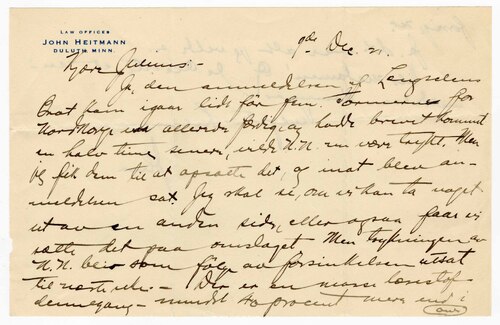 LAW OFFICES
JOHN HEITMANN
DULUTH, MINN.
9de Dec. 21.
Kjære
Ja, den anmeldelsen af Længselens
Baat kom igaar lidt før fem. Formerne for
Nord Norge var allerede færdig, og hadde brevet kommet
en halv time senere, vilde N.N. ha været trykt. Men
jeg fik dem til at opsætte det, og inat blev an-
meldelsen sat. Jeg skal se, om vi kan ta noget
ut av en anden side, eller ogsaa faar vi
sætte det paa omslaget. Men trykningen av
N.N. blir som følge av forsinkelsen utsat
til næste uke. – Der er en masse læsestof
dennegang – mindst 40 procent mere end i
(over)